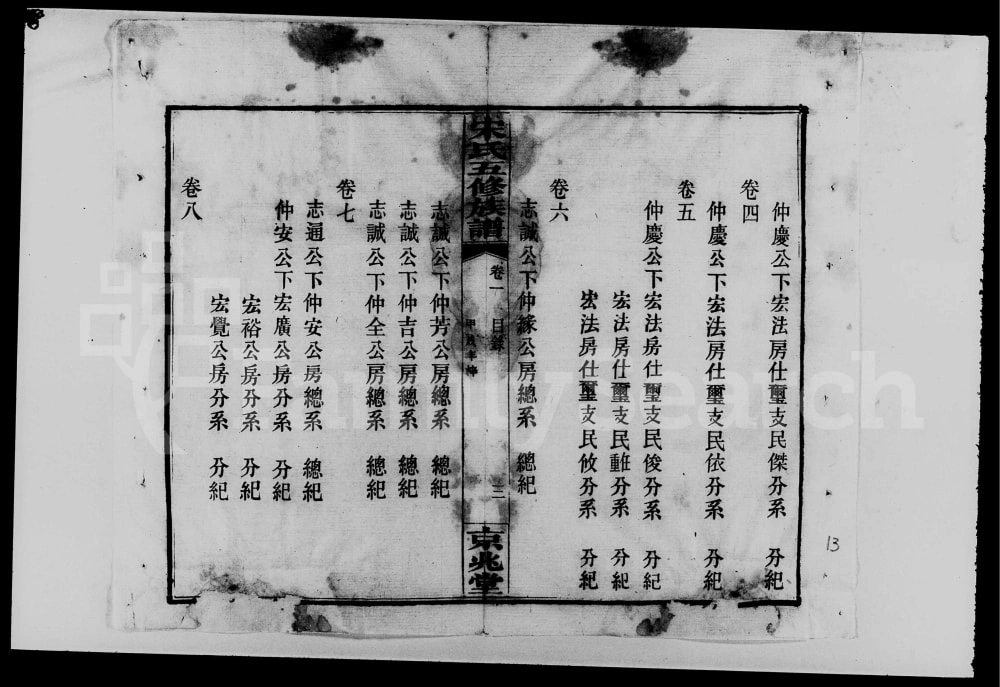 仲慶公下宏法房仕璽支民傑分系 分紀
卷四
仲慶公下宏法房仕璽支民依分系 分紀
卷五
仲慶公下宏法房仕璽支民俊分系 分紀
宏法房仕璽支民分系 分紀
宏法房仕璽支民攸分系 分紀
卷六
志誠公下仲緣公房總系 總紀
宋氏五修族譜
卷一 目錄
三
京兆堂
志誠公下仲芳公房總系 總紀
志誠公下仲吉公房總系 總紀
志誠公下仲全公房總系 總紀
卷七
志通公下仲安公房總系 總紀
仲安公下宏廣公房分系 分紀
宏裕公房分系 分紀
宏覺公房分系 分紀
卷八
13
FamilySearch